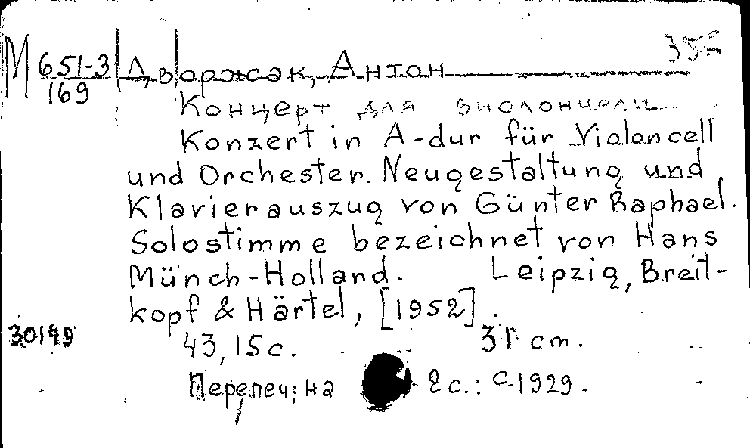 М 651-3 Дворжак, Антон
169
Концерт для виолончели
Konzert in A-dur für Violoncell
und Orchester. Neugestaltung und
Klavierauszug von Günter Raphael.
Solostimme bezeichnet von Hans
Münch-Holland. Leipzig, Breit-
kopf & Härtel, [1952].
30149
43, 15 с. 31 cm.
на 2 с.: с 1929.